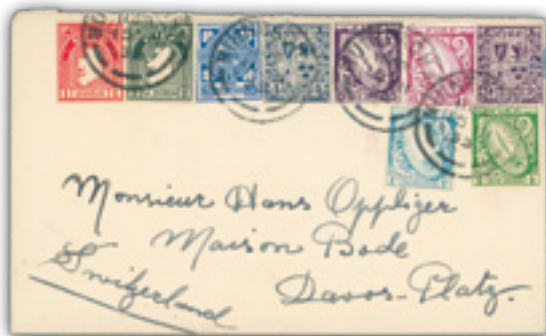 Monsieur Hans Oppliger
Maison Bode
Davos-Platz.
Switzerland